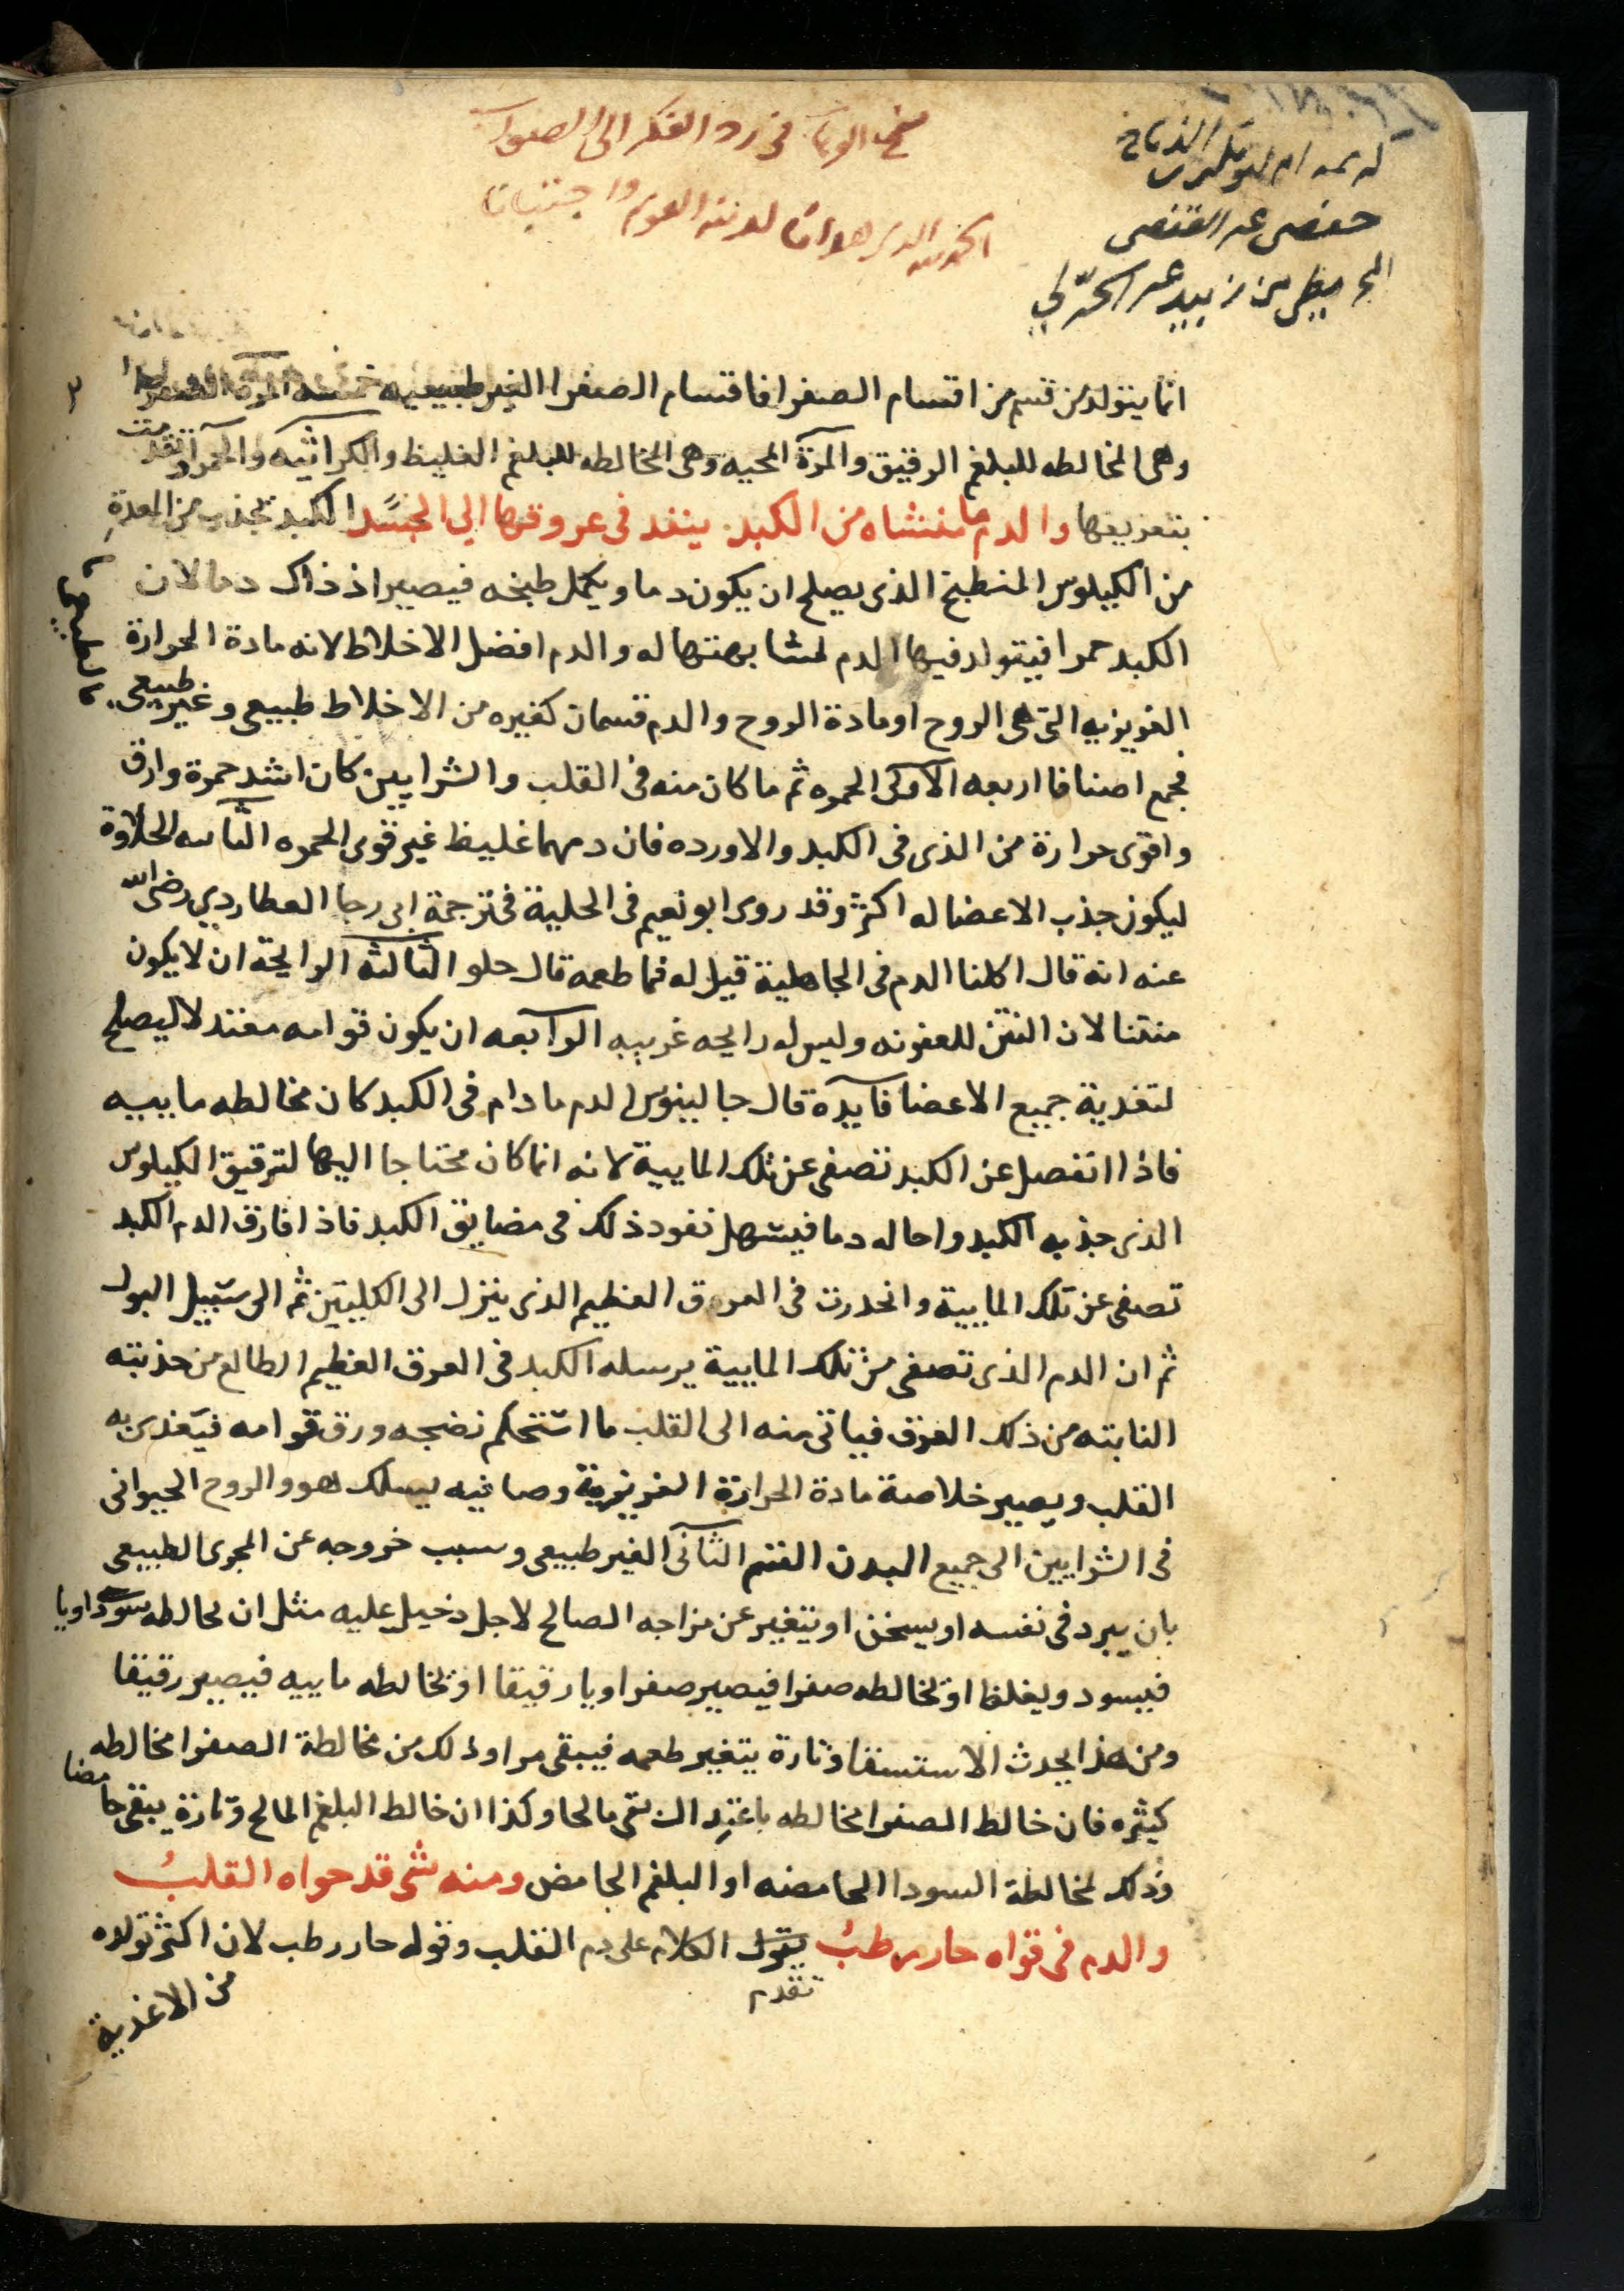 في رد الفكر الى الصواب
حفص عن
انما يتولد من قسم من اقسام الصفرا فاقسام الصفرا الغير طبيعيه خمسه المرة الصفرا
وهى المخالطه للبلغم الرقيق والمرة المحيه وهى المخالطه للبلغم الغليظ والكراثيه والحمرا وتقدمت
بتعريفها والدم ما منشاه من الكبد ينفد فى عروقها الي الجسد الكبد تجذب من المعدة
من الكيلوس المنطبخ الذى يصلح ان يكون دما ويكمل طبخه فيصير اذ ذاك دما لان
الكبد حمرا فيتولد فيها الدم لمشابهتها له والدم افضل الاخلاط لانه مادة الحرارة
الغريزيه التى هى الروح او مادة الروح والدم قسمان كغيره من الاخلاط طبيعى وغير طبيعى
فجمع اصنافا اربعه الاولى الحمره ثم ما كان منه فى القلب والشرايين كان اشد حمرة وارق
واقوى حرارة من الذى فى الكبد والاورده فان دمهما غليظ غير قوى الحمره الثانيه الحلاوة
ليكون جذب الاعضا له اكثر وقد روى ابو نعيم فى الحلية فى ترجمة ابى رجا العطاردي رضى الله
عنه انه قال اكلنا الدم فى الجاهلية قيل له فما طعمه قال حلو الثالثه الرايحة ان لا يكون
منتنا لان النتن للعفونه وليس له رايحه غريبه الرابعه ان يكون قوامه معتدلا ليصلح
لتغذية جميع الاعضا فايدة قال جالينوس الدم ما دام فى الكبد كان مخالطه ماييه
فاذا انفصل عن الكبد تصفى عن تلك الماييه لانه انما كان محتاجا اليها لترقيق الكيلوس
الذى جذبه الكبد واحاله دما فيسهل نفود ذلك فى مضايق الكبد فاذا فارق الدم الكبد
تصفى عن تلك الماييه وانحدرت فى العروق العظيم الذى ينزل الى الكليتين ثم الى سبيل البول
ثم ان الدم الذى تصفى من تلك الماييه يرسله الكبد فى العرق العظيم الطالع من حذبته
النابته من ذلك العرق فياتى منه الى القلب ما استحكم نضجه ورق قوامه فيغذى به
القلب ويصير خلاصة مادة الحرارة الغريزية وصافيه يسلك هو والروح الحيوانى
فى الشرايين الى جميع البدن القسم الثانى الغير طبيعى وسبب خروجه عن المجرى الطبيعى
بان يبرد فى نفسه او يسخن او يتغير عن مزاجه الصالح لاجل دخيل عليه مثل ان يخالطه سوداويا
فيسود ويغلظ او تخالطه صفرا فيصير صفراويا رقيقا او تخالطه ماييه فيصير رقيقا
ومن هذا يحدث الاستسقا وتارة يتغير طعمه فيبقى مرا وذلك من مخالطة الصفرا مخالطه
كثيره فان خالط الصفرا مخالطه باعتدال بقى مالحا وكذا ان خالط البلغم المالح وتارة يبقى حامضا
وذلك لمخالطة السودا الحامضه او البلغم الحامض ومنه شى قد حواه القلب
والدم فى قواه حار رطب يقول الكلام على دم القلب وقوله حار رطب لان اكثر تولده
تقدم
من الاغذية